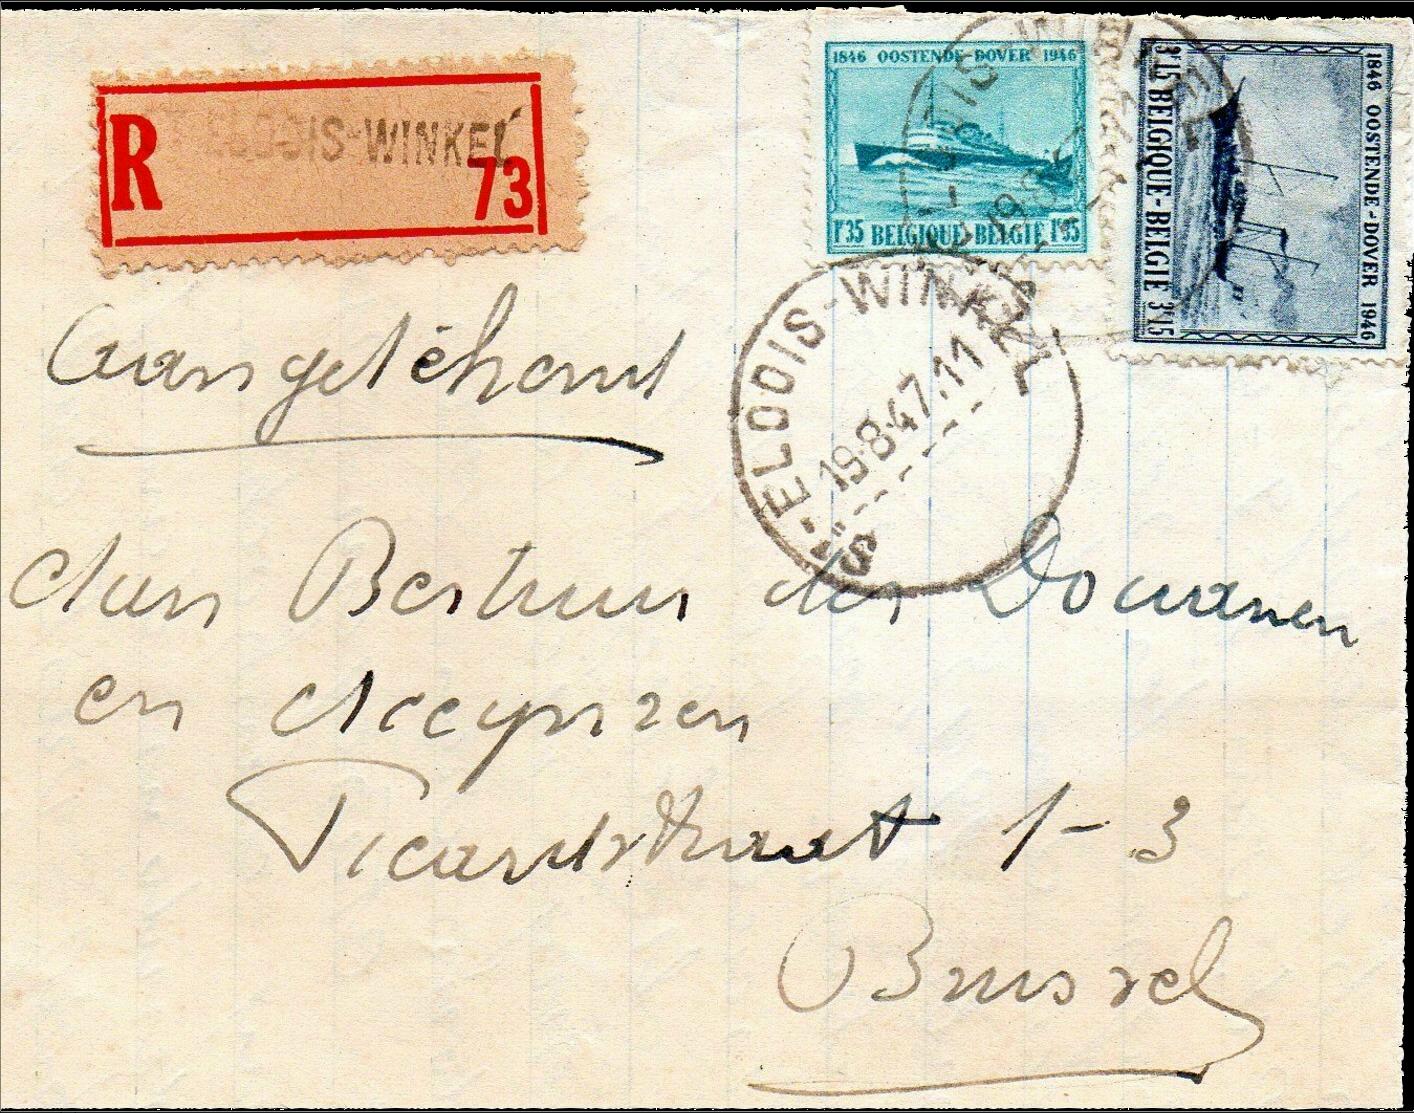 R
ST ELOOIS-WINKEL
73
1846 OOSTENDE-DOVER 1946
1F35 BELGIQUE-BELGIE 1F35
1846 OOSTENDE-DOVER 1946
3F15 BELGIQUE-BELGIE 3F15
ST-ELOOIS-WINKEL
19-8-47.11
Aangetékend
Aan Bestuur der Douanen
en Accynzen
Picardstraat 1-3
Brussel